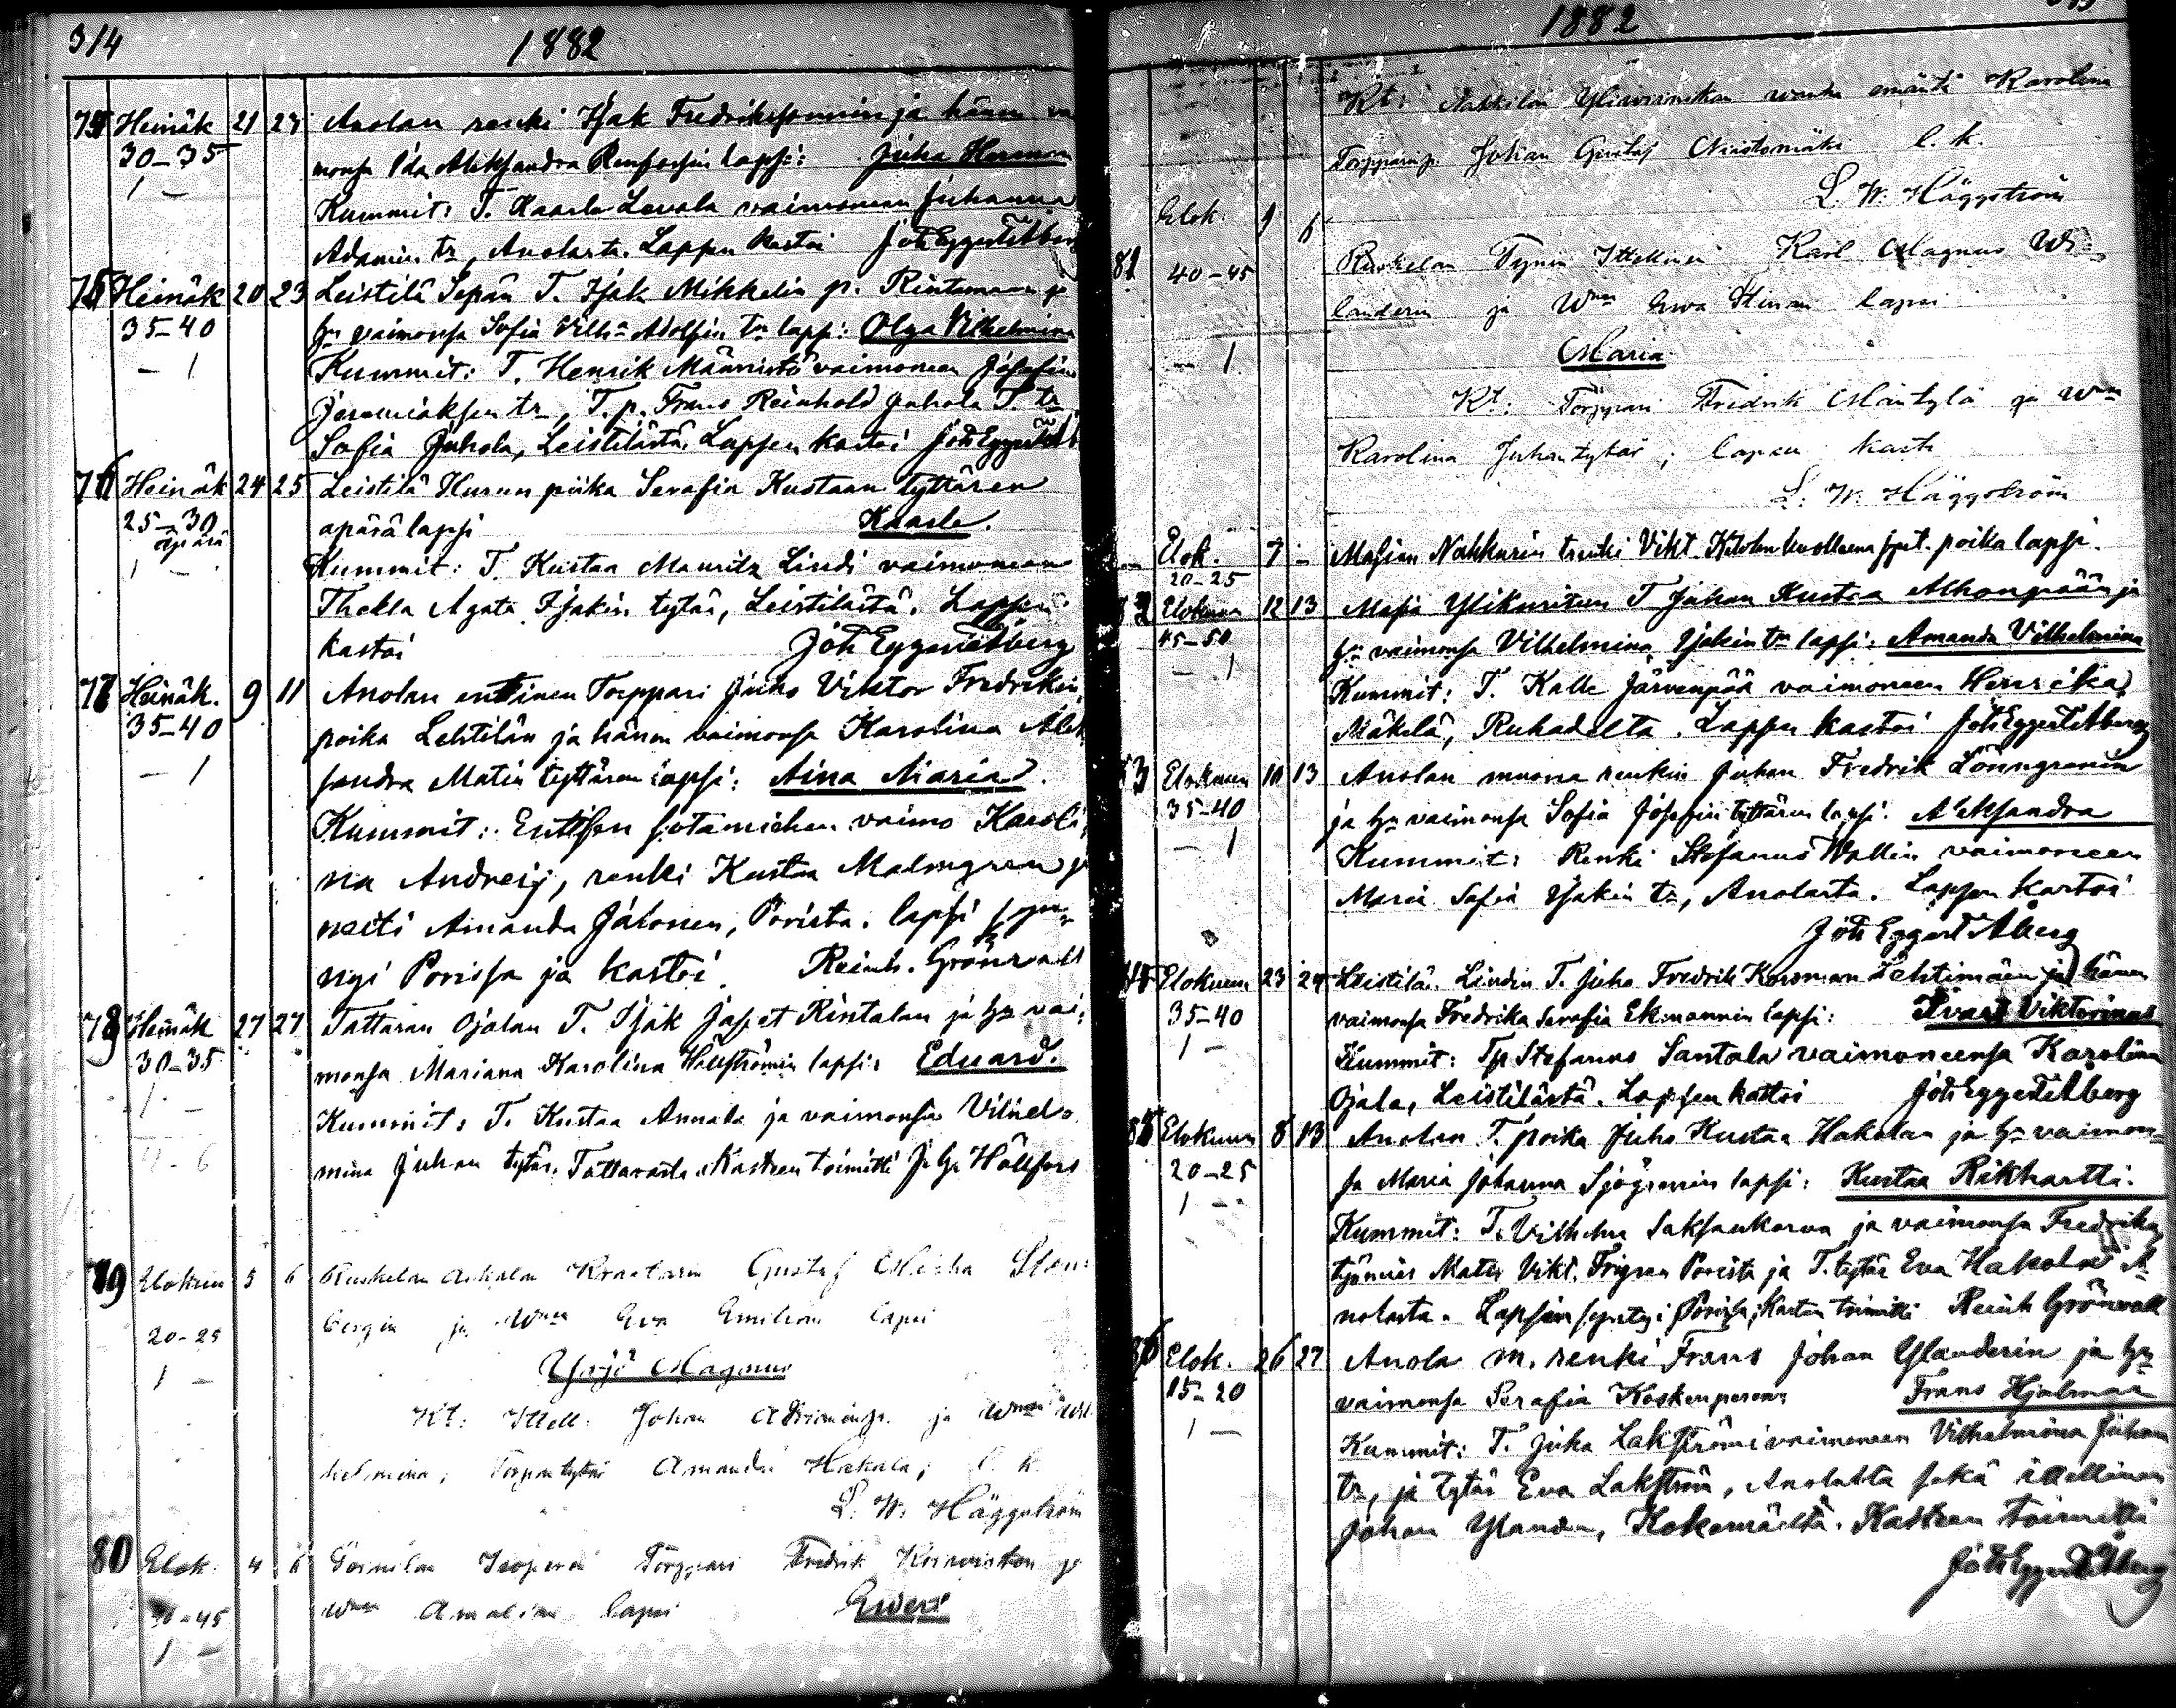 314
1882
74 Heinäk 21 23 Anolan renki Isak Fredrikssonnin ja hänen vai
30-35 monsa Ida Aleksandra lapsi: Juha Herman
1 - Kummit: T. Kaarle Levola vaimoneen Juhanna
Adamin tr, Anolasta. Lapsen kastoi Joh Eggert Åberg
75 Heinäk 20 23 Leistilä Sepän T. Isak Mikkelin p. Rintamaan ja
35-40 hn vaimonsa Sofia Vilhna Adolfin tr lapsi: Olga Vilhelmina
- 1 Kummit: T. Henrik Männistö vaimoneen Josefina
Jeremiaksen tr, T. p. Frans Reinhold Juhola T. tr
Sofia Juhola, Leistilästä. Lapsen kastoi Joh Eggert Åb
76 Heinäk 24 25 Leistilä Hurun piika Serafia Kustaan tyttären
25-30 äpärä lapsi Kaarle.
äpärä
1 - Kummit: T. Kustaa Mauritz Lindi vaimoneen
Thekla Agata Isakin tytär, Leistilästä. Lapsen
kastoi Joh Eggert Åberg
77 Heinäk. 9 11 Anolan entinen Torppari Juho Viktor Fredrikin
35-40 poika Lehtilän ja hänen vaimonsa Karolina Alek
- 1 sandra Matin tyttären lapsi: Aina Maria.
Kummit: Entisen sotamiehen vaimo Karoli
na Andreij, renki Kustaa Malmgren ja
neiti Amanda Jalonen, Porista. lapsi syn
nyi Porissa ja kastoi Reinh. Grönvall
78 Heinäk 27 27 Tattaran Ojalan T. Isak Japet Rintalan ja hn vai
30-35 monsa Mariana Karolina Hällströmin lapsi: Eduard.
1 - Kummit: T. Kustaa Annala ja vaimonsa Vilhel
mina Juhan tytär, Tattarasta. Kasteen toimitti J. Hj. Hällfors
79 Elokuu 5 6 Ruskelan Gustaf Sten
bergin ja Wmon Eva Emilian lapsi
20-25
1 - Yrjö Magnus
Kt: Ittell: Johan ja Wmon Wil
helmina; Torpantytär Amanda Hakala; l. k.
L. W. Häggström
80 Elok: 4 6 Isoperen Torppari Fredrik Koiviston ja
40-45 Wmon Amalian lapsi Eweri
1 -
1882
Kt: Nakkilan vanha emäntä Karolina
Torpparinp. Johan Gustaf l. k.
L. W. Häggström
Elok: 1 6
81 40-45 Ruskelan Ittellinen Karl Magnus Wi
landerin ja Wmon Ewa lapsi
- 1 Maria
Kt: Torppari Fredrik Mäntylä ja Wmon
Karolina Juhantytär; lapsen kast:
L. W. Häggström
Elok. 7 - Masian Nahkurin Vikt. kuolleena synt. poika lapsi.
20-25
82 Elokuun 12 13 Masia T Juhan Kustaa Alhonpään ja
45-50 hn vaimonsa Vilhelmina Isakin tr lapsi: Amanda Vilhelmina
- 1 Kummit: T. Kalle Järvenpää vaimoneen Henrika
Mäkelä, Ruhadelta. Lapsen kastoi Joh Eggert Åberg
83 Elokuun 10 13 Anolan muona renkin Juhan Fredrik Lönngrenin
35-40 ja hn vaimonsa Sofia Josefin tyttären lapsi: Aleksandra
- 1 Kummit: Renki Stefanus Wallin vaimoneen
Maria Sofia Isakin tr, Anolasta. Lapsen kastoi
Joh Eggert Åberg
84 Elokuun 23 24 Leistilä. Lindin T. Juho Fredrik Korsman Lehtimäen ja hänen
35-40 vaimonsa Fredrika Serafia Ekmannin lapsi: Ivart Viktorinus
1 - Kummit: Tp Stefanus Santala vaimoneensa Karolina
Ojala, Leistilästä. Lapsen kastoi Joh Eggert Åberg
85 Elokuun 8 13 Anolan T. poika Juho Kustaa Hakolan ja hn vaimon
20-25 sa Maria Johanna Sjögrenin lapsi: Kustaa Rikhartti.
1 - Kummit: T. Vilhelm Saksankorva ja vaimonsa Fredrika,
työmies Mats Vikt. Frigren Porista ja T. tytär Eva Hakola A
nolasta. Lapsi syntyi Porissa, Kasteen toimitti Reinh Grönvall
86 Elok. 26 27 Anola m. renki Frans Johan Ylanderin ja hn
15-20 vaimonsa Serafia Koskenperen Frans Hjalmar
1 - Kummit: T. Juha Lakström vaimoneen Vilhelmina Juhan
tr, ja tytär Eva Lakström, Anolasta sekä itellinen
Johan Ylander, Kokemäeltä. Kasteen toimitti
Joh Eggert Åberg